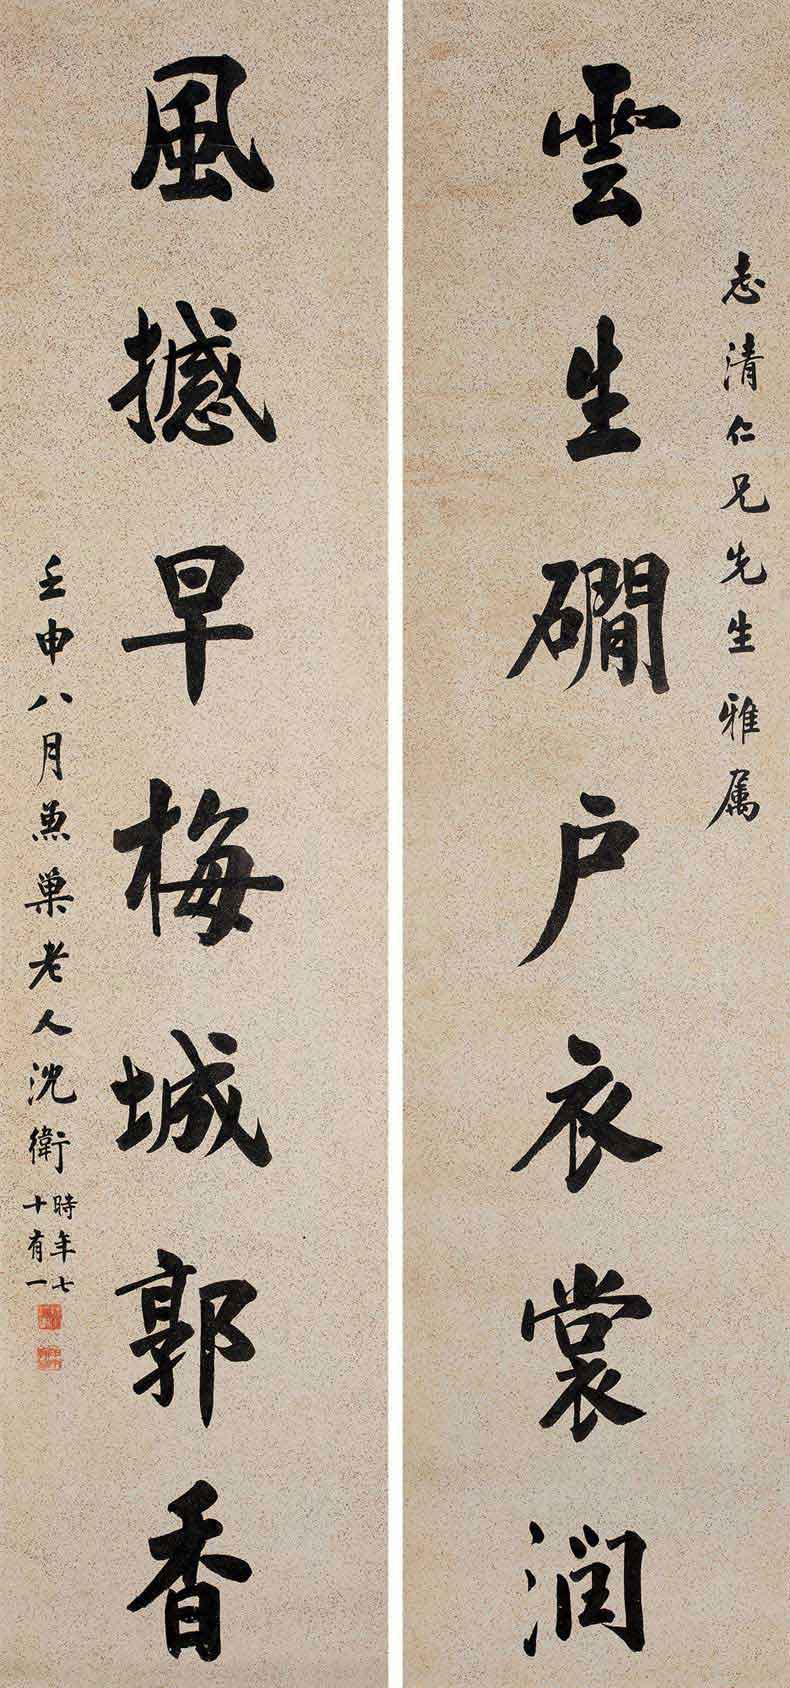 志清仁兄先生雅属
雲生磵户衣裳潤
風撼早梅城郭香
壬申八月兼巢老人沈衛
時年七
十有一